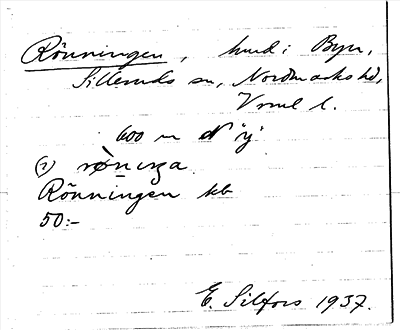 Rönningen, hmd i Byn,
Silleruds sn, Nordmarks hd,
Vrml l.
600 m N "y"
(1) rønıŋa
Rönningen kb
50:-
E. Silfors 1937.